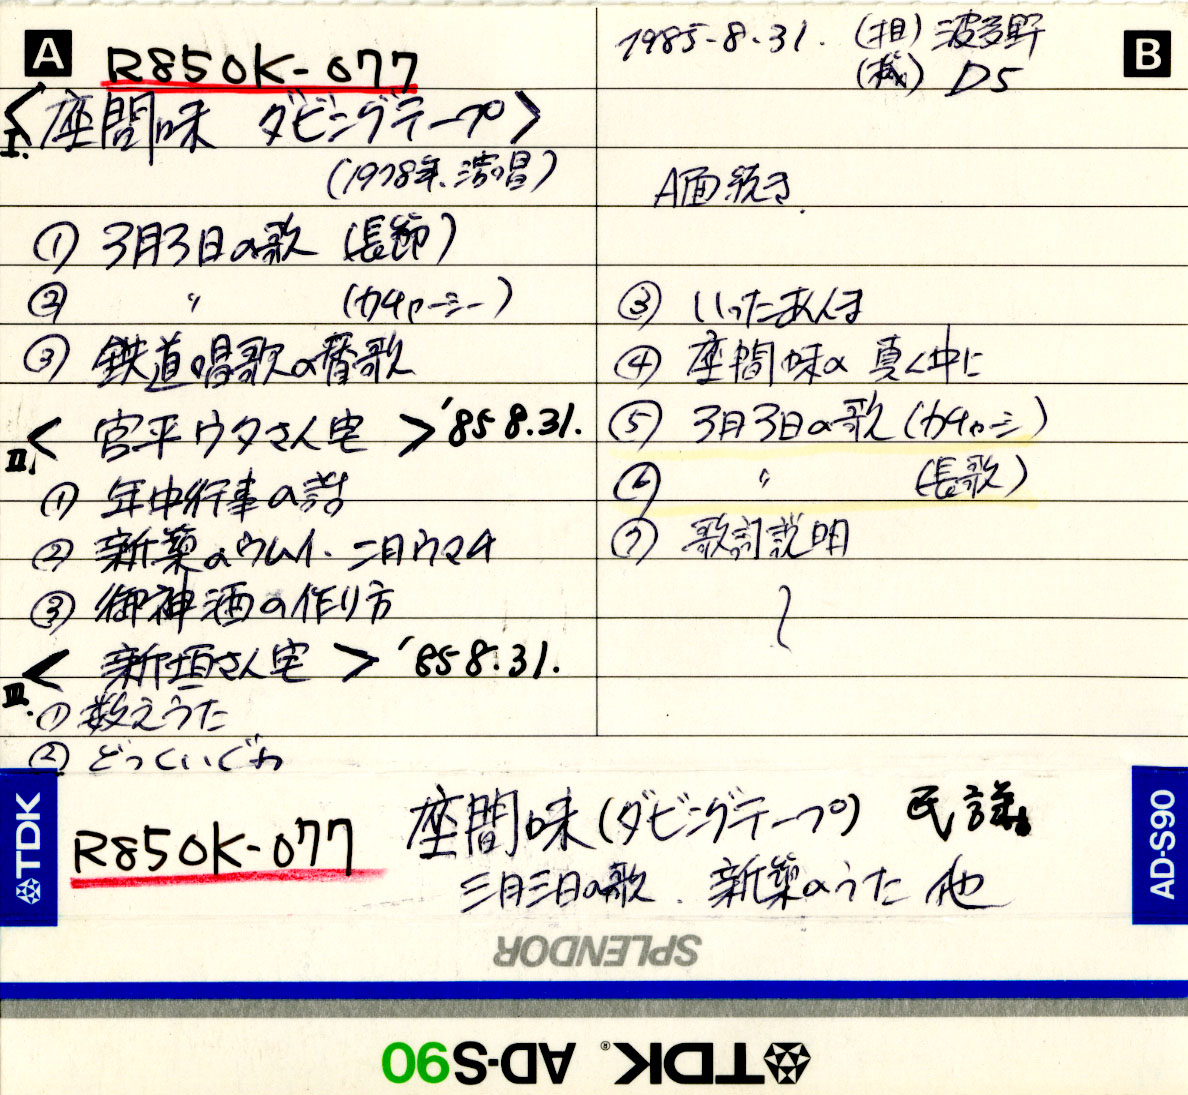 A
R850K-077
<座間味 ダビングテープ>
I.
(1978年、演唱)
① 3月3日の歌 (長節)
② 〃 (カチャーシー)
③ 鉄道唱歌の替歌
II. < 宮平ウタさん宅 > '85 8.31.
① 年中行事の話
② 新築のウムイ・二月ウマチ
③ 御神酒の作り方
III. < 新垣さん宅 > '85 8.31.
① 数えうた
② どっくいぐわ
1985-8.31. (担) 波多野
(機) D5
B
A面続き
③ いったあんま
④ 座間味の真く中に
⑤ 3月3日の歌 (カチャーシ)
⑥ 〃 (長歌)
⑦ 歌詞説明
TDK
R850K-077
座間味 (ダビングテープ) 民謡
三月三日の歌. 新築のうた 他
AD-S90
SPLENDOR
TDK® AD-S90